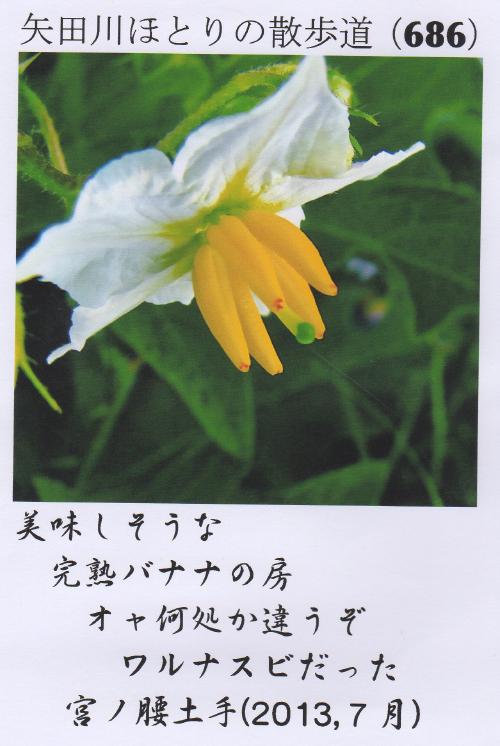 矢田川ほとりの散歩道(686)
美味しそうな
完熟バナナの房
オャ何処か違うぞ
ワルナスビだった
宮ノ腰土手(2013,7月)